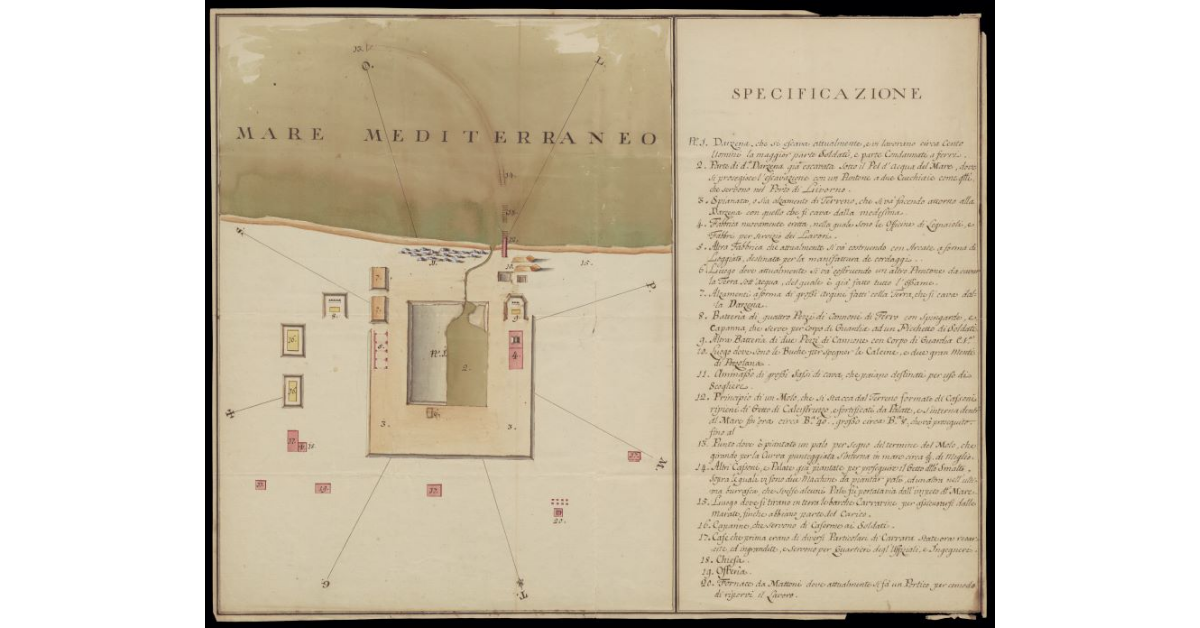 MARE MEDITERRANEO
SPECIFICAZIONE
Nº. 1. Darzena, che si escava attualmente, e vi lavorano circa Cento
Uomini la maggior parte Soldati, e parte Condannati a ferri.
2. Parte di d.ª Darzena già escavata sotto il Pel d'Acqua del Mare, dove
si proseguisce l'escavazione con un Pontone a due Cucchiaie come
che servono nel Porto di Livorno.
3. Spianata, o sia alzamento di Terreno, che si va facendo attorno alla
Darzena con quello che si cava dalla medesima.
4. Fabbrica nuovamente eretta, nella quale sono le Officine di Legnaioli, e
Fabbri per servizio dei Lavori.
5. Altra Fabbrica che attualmente si va costruendo con Arcate a forma di
Loggiati, destinata per la manifattura de cordaggi.
6. Luogo dove attualmente si va costruendo un altro Pontone da cavar
la Terra sott'acqua, del quale è già fatto tutto l'ossame.
7. Alzamenti a forma di grossi argini fatti colla Terra, che si cava dal-
la Darzena.
8. Batteria di quattro Pezzi di Cannoni di Ferro con Spingarde, e
Capanna, che serve per Corpo di Guardia ad un Picchetto di Soldati
9. Altra Batteria di due Pezzi di Cannone con Corpo di Guardia
10. Luogo dove sono le Buche per spegner le Calcine, e due gran Monti
di Pozolana.
11. Ammasso di grossi Sassi di cava, che paiano destinati per uso di
Scogliere.
12. Principio di un Molo, che si stacca dal Terreno formato di Cassoni
ripieni di Getto di Calcistruzzo, e fortificati da Palate, e s'interna dentro
al Mare fin'ora circa B.ª 40., grosso circa B.ª 8, che va proseguito
fino al
13. Punto dove è piantato un palo per segno del termine del Molo, che
girando per la Curva punteggiata s'interna in mare circa di Miglio.
14. Altri Cassoni, e Palate già piantate per proseguire il Getto dello Smalto,
sopra le quali vi sono due Macchine da piantar pali, ed un'altra nell'ulti-
ma burrasca, che svelse alcuni Pali fu portata via dall'impeto del Mare.
15. Luogo dove si tirano in terra le barche Carrarine per assicurarsi dalle
Mareate finche abbiano parte del Carico.
16. Capanne, che servono di Caserme ai Soldati.
17. Case che prima erano di diversi Particolari di Carrara State ora
ed ingrandite, e servono per Quartieri degl'Uffiziali, e Ingegneri.
18. Chiesa.
19. Osteria.
20. Fornace da Mattoni dove attualmente si fà un Portico per comodo
di riporvi il Lavoro.
13.
O.
L.
14.
12.
11.
10.
15.
P.
7.
7.
8.
9.
16.
5.
4.
Nº. 1.
2.
16.
6.
3.
3.
M.
17.
17.
17.
20.
G.
T.